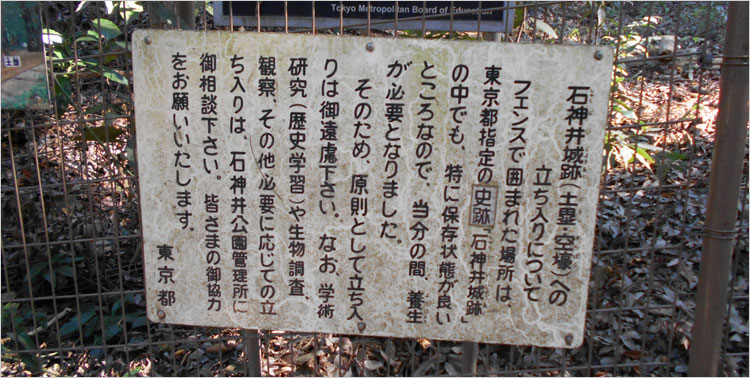 Tokyo Metropolitan Board of Education
石神井城跡（土塁・空壕）への
立ち入りについて
フェンスで囲まれた場所は、
東京都指定の史跡「石神井城跡」
の中でも、特に保存状態が良い
ところなので、当分の間、養生
が必要となりました。
そのため、原則として立ち入
りは御遠慮下さい。なお、学術
研究（歴史学習）や生物調査、
観察、その他必要に応じての立
ち入りは、石神井公園管理所に
御相談下さい。皆さまの御協力
をお願いいたします。
東京都